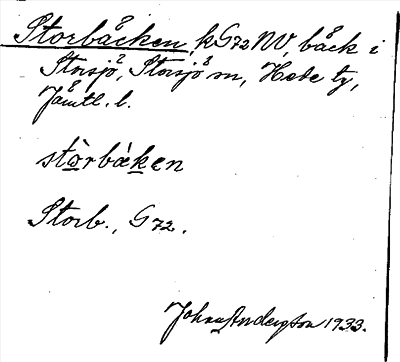 Storbäcken, k G72 NV, bäck i
Storsjö, Storsjö sn, Hede tg,
Jämtl. l.
stòrbäken
Storb., G72.
Johan Anderston 1933.